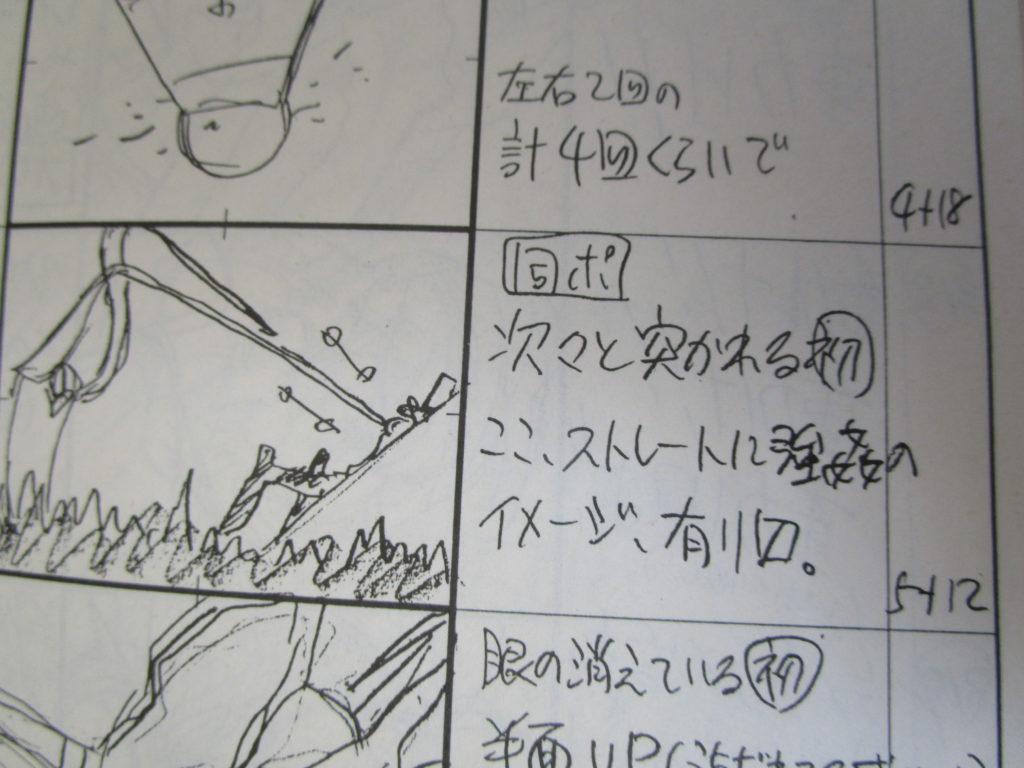 左右2回の
計4回くらいで
4+18
回ポ
次々と突かれる初
ここ、ストレートに強姦の
イメージ、有り切。
5+12
眼の消えている初
半面UP(